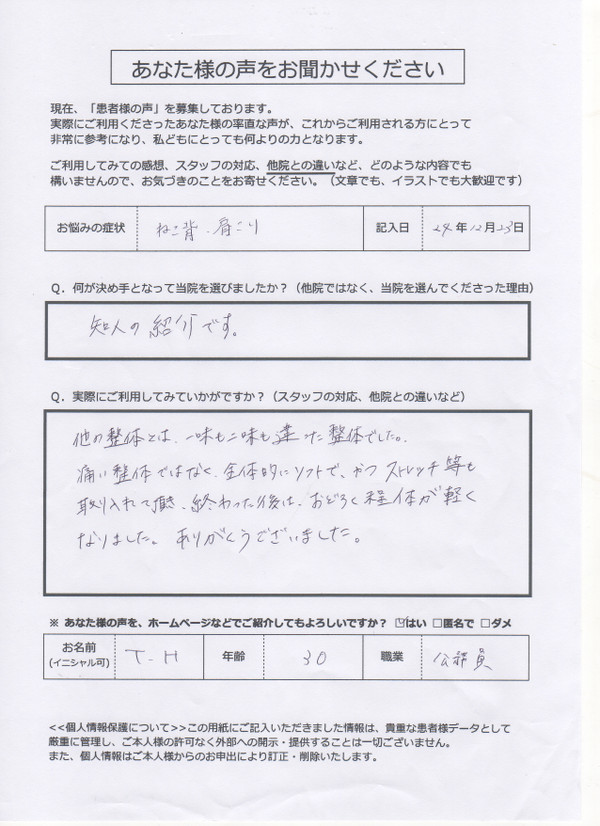 あなた様の声をお聞かせください
現在、「患者様の声」を募集しております。
実際にご利用くださったあなた様の率直な声が、これからご利用される方にとって
非常に参考になり、私どもにとっても何よりの力となります。
ご利用してみての感想、スタッフの対応、他院との違いなど、どのような内容でも
構いませんので、お気づきのことをお寄せください。（文章でも、イラストでも大歓迎です）
お悩みの症状 ねこ背、肩こり 記入日 24年12月23日
Q．何が決め手となって当院を選びましたか？（他院ではなく、当院を選んでくださった理由）
知人の紹介です。
Q．実際にご利用してみていかがですか？（スタッフの対応、他院との違いなど）
他の整体とは、一味も二味も違った整体でした。
痛い整体ではなく、全体的にソフトで、かつストレッチ等も
取り入れて頂き、終わった後は、おどろく程体が軽く
なりました。ありがとうございました。
※ あなた様の声を、ホームページなどでご紹介してもよろしいですか？ ☑はい □匿名で □ダメ
お名前 T-H 年齢 30 職業 公務員
(イニシャル可)
<<個人情報保護について>>この用紙にご記入いただきました情報は、貴重な患者様データとして
厳重に管理し、ご本人様の許可なく外部への開示・提供することは一切ございません。
また、個人情報はご本人様からのお申出により訂正・削除いたします。